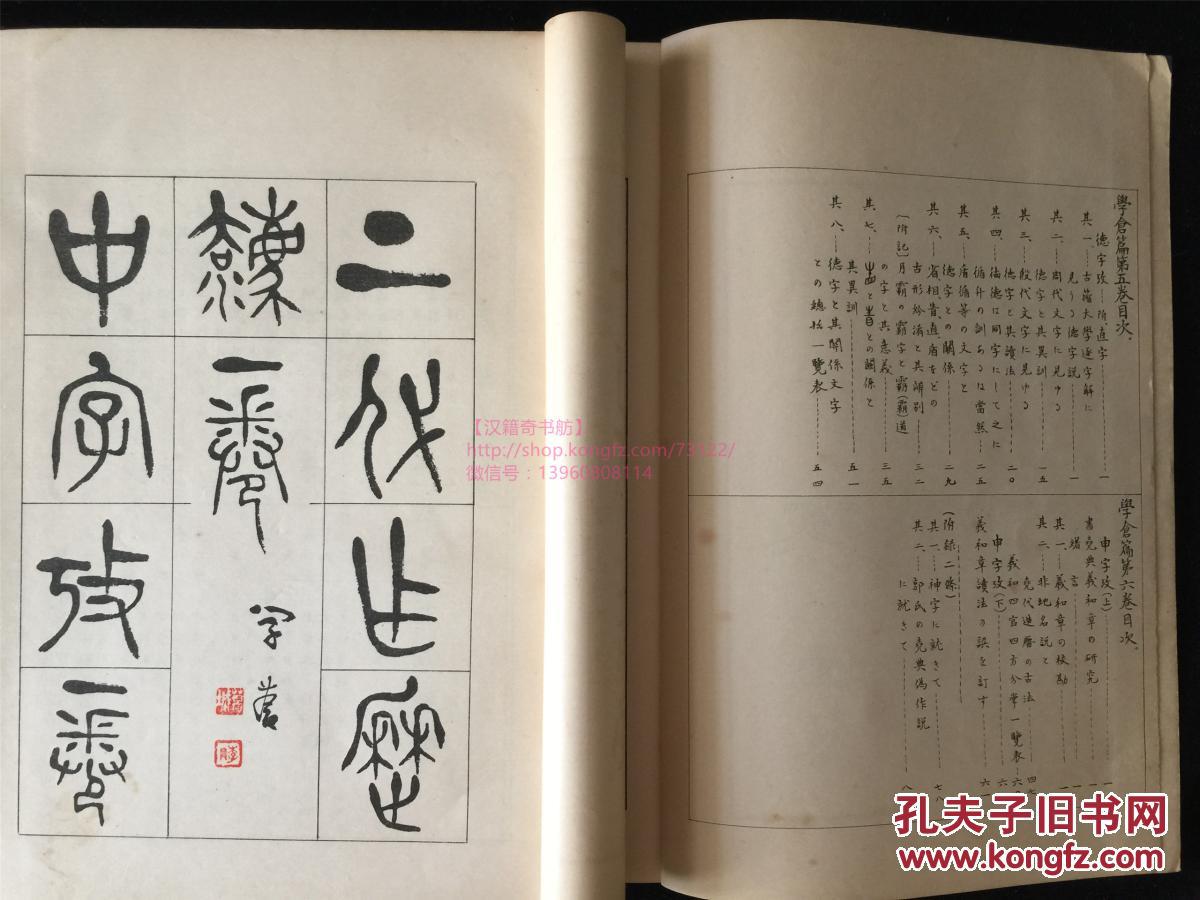 學倉篇第五卷目次.
德字攷……附直字……一
其一、……古籀大學逐字解に
見うる德字説……一
其二、……周代文字に見ゆる
德字と其異訓……一五
其三、……殷代文字に見ゆる
德字と其讀法……二〇
其四、……德は同字にして之に
循升の訓あるは當然……二五
其五、……盾循等の文字と
德字との關係……二九
其六、……省相眚直盾などの
古形紛淆と其辨別……三二
〔附記〕月霸の霸字と霸(覇)道
の字と其意義……三五
其七、……と との關係と
其異訓……五一
其八、……德字と其關係文字
との總括一覽表……五四
學倉篇第六卷目次.
申字攷(上)……一
書堯典義和章の研究
緒言……一
其一、……義和章の校勘……一
其二、……非地名説と
堯代進曆の古法……四七
義和四官四方分掌一覽表……六
申字攷(下)……六
義和章讀法の誤を訂す……六一
(附録二條)
其一、……神字に就きて……七八
其二、……郭氏の堯典偽作説
に就きて……八
二代
中字攷
【汉籍奇书舫】
http://shop.kongfz.com/73122/
微信号：13960808114
孔夫子旧书网
www.kongfz.com